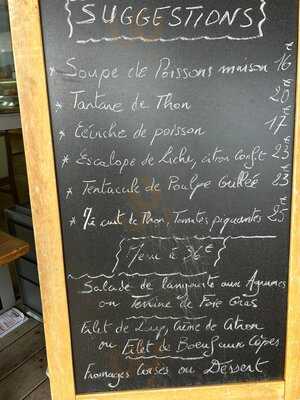 SUGGESTIONS
* Soupe de Poissons maison 16€
* Tartare de Thon 20€
* de poisson 17€
* Escalope de Liche, citron confit 23€
* Tentacule de Poulpe Grillée 23€
* Mi cuit de Thon, Tomates piquantes 25€
Menu à 36€
Salade de langouste aux Agrumes
ou Terrine de Foie Gras
Filet de Crème de Citron
ou Filet de Boeuf aux Cèpes
Fromages Corses ou Dessert